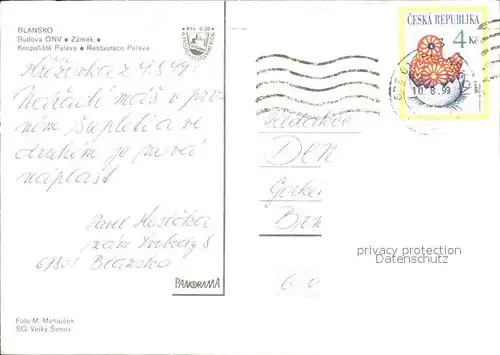 BLANSKO
Budova ONV ● Zámek ●
Koupaliště Palava ● Restaurace Palava
Kčs 0,70
Křížovka z 4.8.99:
Nářadí máš v prv-
ním šupleti a ve
druhém je nová
náplast
Pavel Husička
nám. Svobody 8
67801 Blansko
PANORAMA
Foto M. Matoušek
SG Velký Šenov
ČESKÁ REPUBLIKA
4 Kč
10.8.99
Redakce
DEN
Gorkéh
Brn
60
privacy protection
Datenschutz